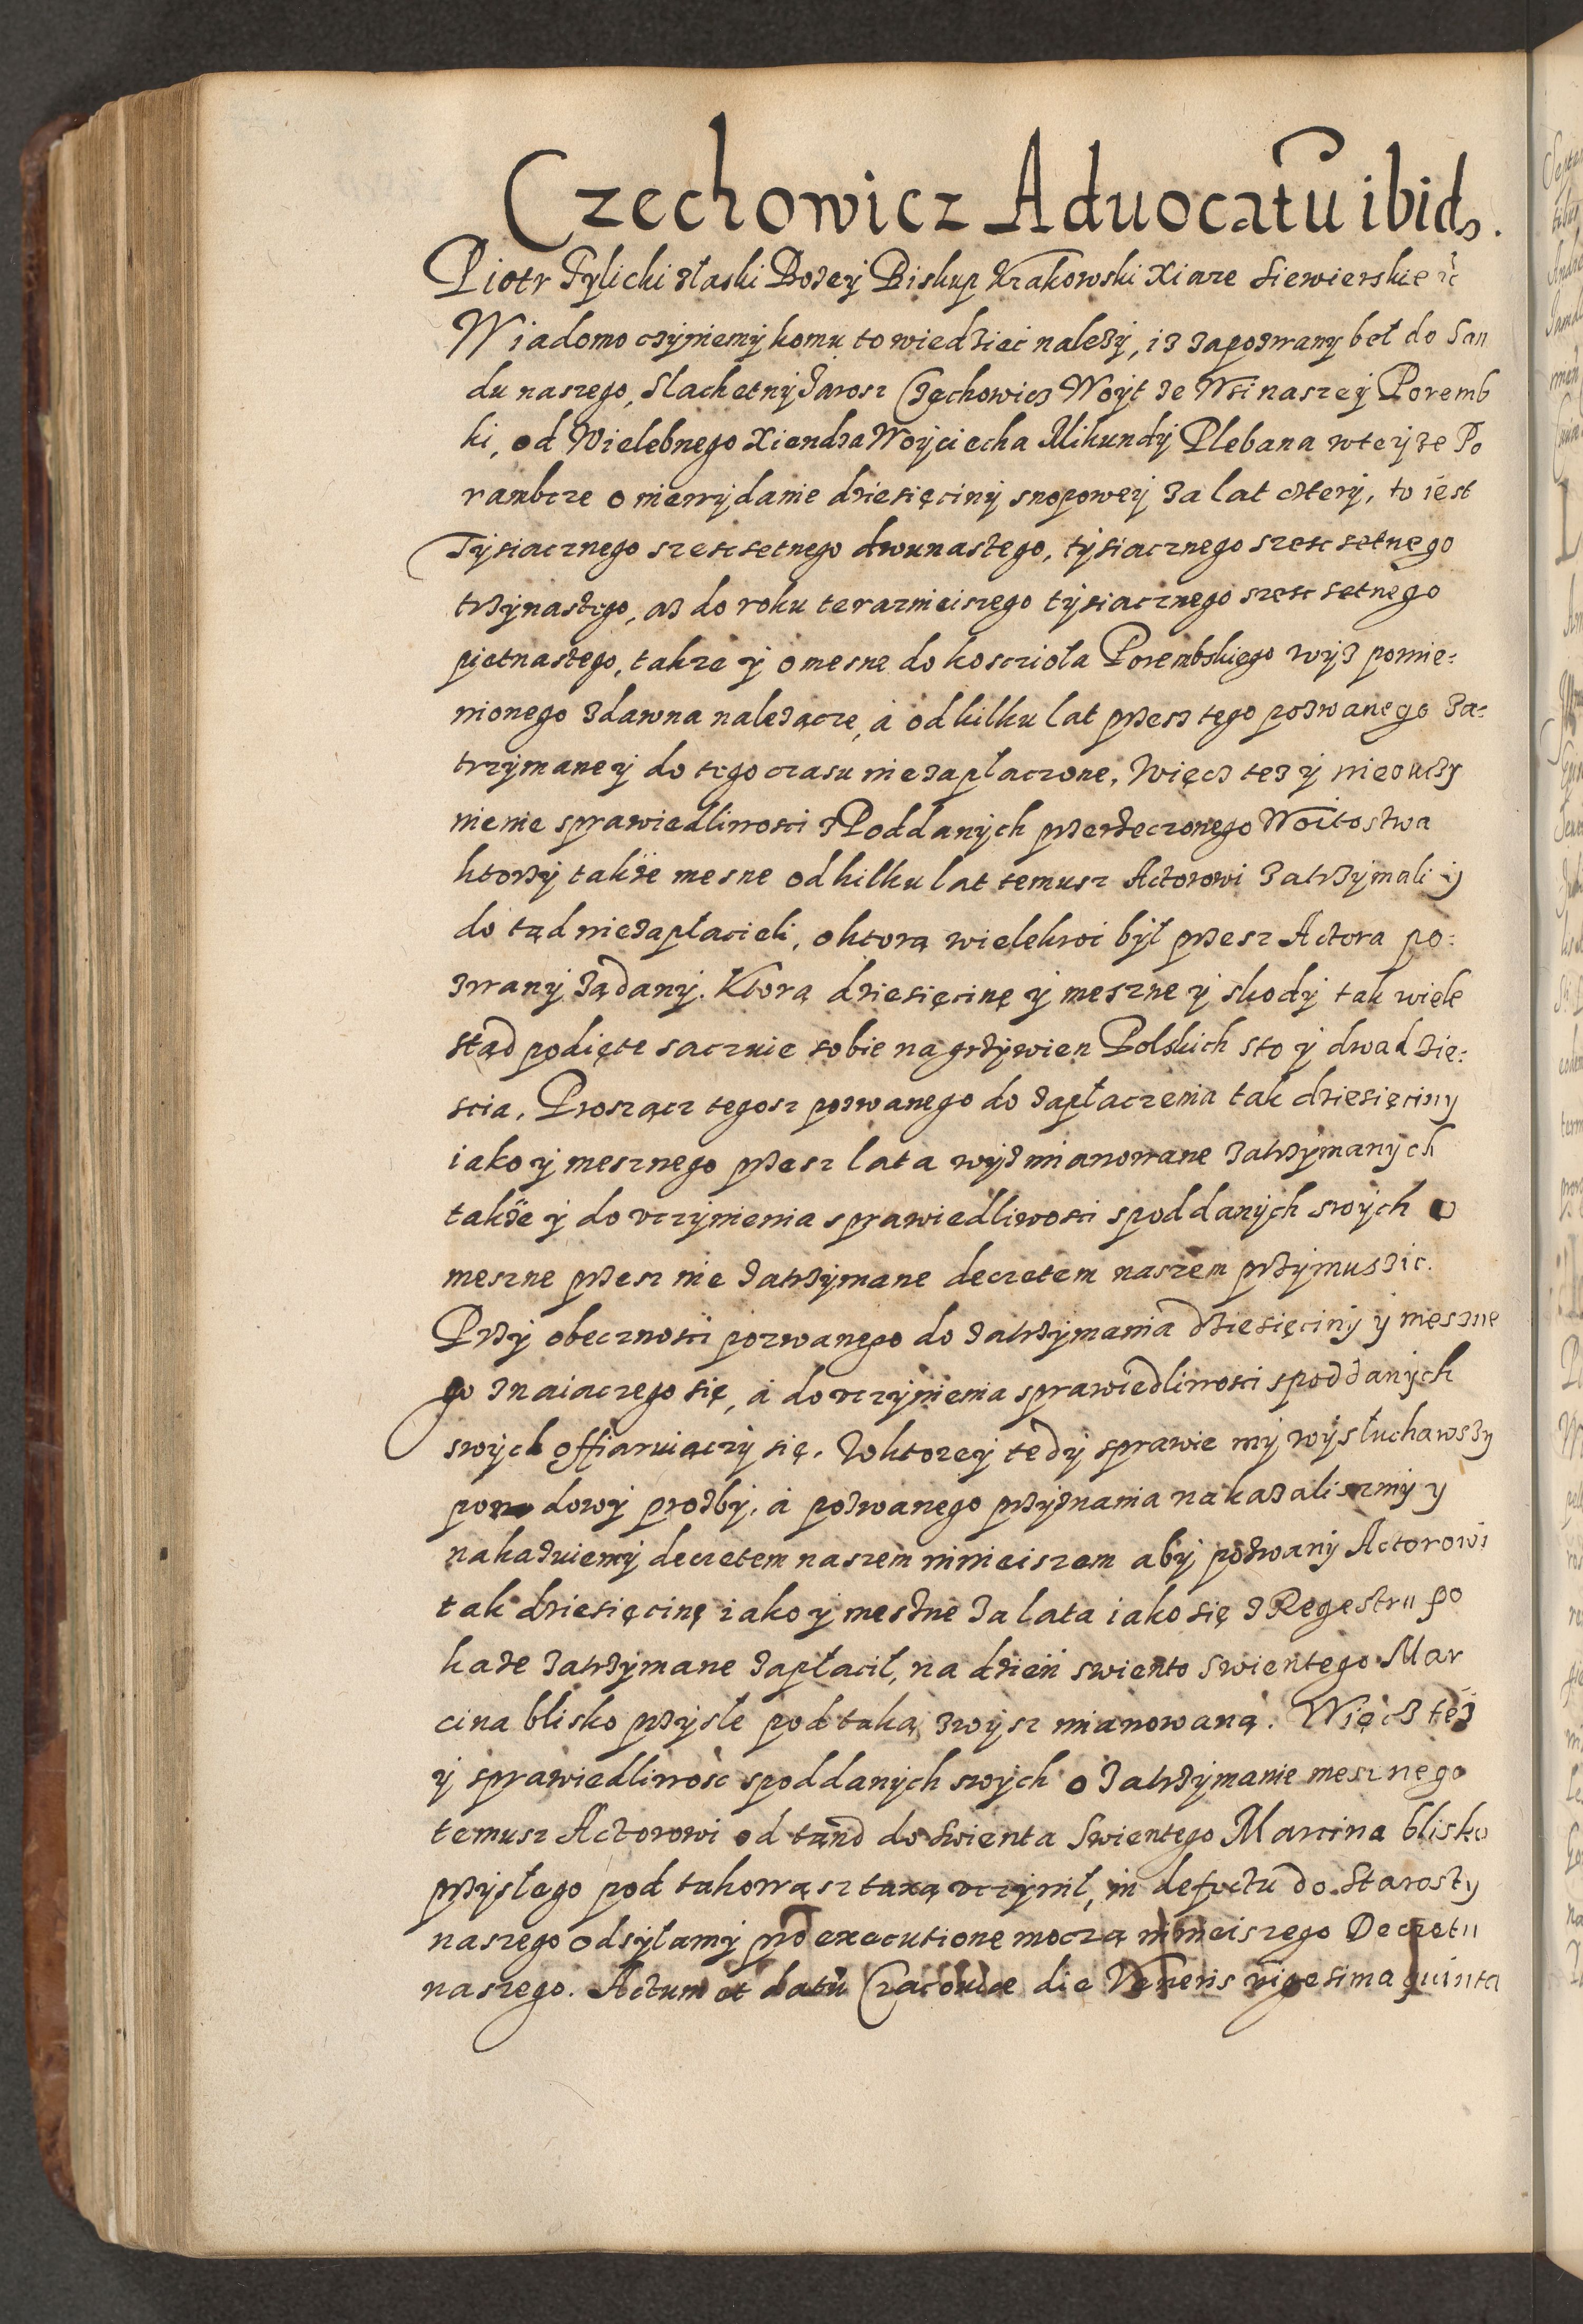 Czechowicz Aduocatũ ibid.
Piotr Tylicki z łaski Bozey Biskup Krakowski Xiaze Siewierskie
Wiadomo czyniemy komu to wiedziec nalezy, iz zapozwany beł do San
du naszego, Slachetny Jarosz Czechowicz Woyt ze Wsi naszey Poremb
ki, od Wielebnego Xiendza Woyciecha Mikundy Plebana w teyze Po
rambcze o niewydanie dziesięciny snopowey za lat cztery, to iest
Tysiacznego szescsetnego dwunastego, tysiacznego szesc setnego
trzynastego, az do roku teraznieiszego tysiacznego szesc setnego
pietnastego, takze y o mesne do koscioła Porembskiego wyz pomie:
nionego zdawna nalezącze, a od kilku lat przesz tego pozwanego za:
trzymane y do tego czasu niezapłaczone, Więcz tez y nieouczy
nienie sprawiedliwosci z Poddanych przerzeczonego Woitostwa
ktorzy takze mesne od kilku lat temusz Actorowi zatrzymali y
do tąd niezapłacieli, o ktorą wielekroc był przesz Actora po:
zwany ządany. Ktorą dziesięcinę y meszne y skody tak wiele
stąd podięte sacznie sobie na grzywien Polskich sto y dwadzie:
scia, Prosząz tegosz pozwanego do zapłaczenia tak dziesięciny
iako y mesznego przesz lata wyz mianowane zatrzymanych
takze y do vczynienia sprawiedliwosci s poddanych swych o
meszne przesz nie zatrzymane decretem naszem przymuszic.
Przy obecznosci pozwanego do zatrzymania dziesięciny y meszne
go znaiaczego się, a do vczynienia sprawiedliwosci s poddanych
swych offiaruiączy się. W ktorey tedy sprawie my wysłuchawszy
powodowy prozby, a pozwanego przyznania nakazaliszmy y
nakazuiemy decretem naszem ninieiszem aby pozwany Actorowi
tak dziesięcinę iako y meszne za lata iako się z Regestru po
kaze zatrzymane zapłacił, na dzień swiento Swientego Mar
cina blisko przysłe pod taką zwysz mianowaną. Więcz też
y sprawiedliwosc s poddanych swych o zatrzymanie mesznego
temusz Actorowi od tąnd do swienta Swientego Marcina blisko
przysłego pod takowąsz taxą vczynił, in defectu do Starosty
naszego odsyłamy pro executione moczą ninieiszego Decretu
naszego. Actum et datũ Cracouiæ die Veneris vigesima quinta